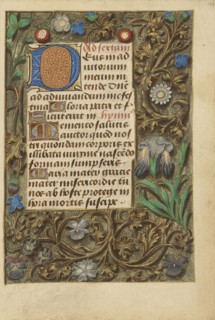 Ad sextam
Deus in ad
iutorium
meum in
tende Dne
ad adiuuandum me fest
Gloria patri et f
ymnus
Memento salutis
auctor quod nost
tri quondam corporis ex
illibata virgine nascedo
formam sumpseris
Maria mater gratie
mater misericordie tu
nos ab hoste protege in
hora mortis suscipe